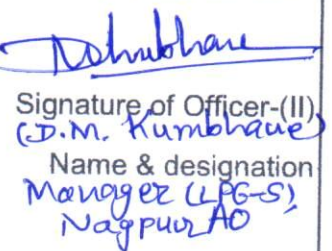 Signature of Officer-(II)
(D.M. Kumbhare)
Name & designation
Manager (LPG-S),
Nagpur AO